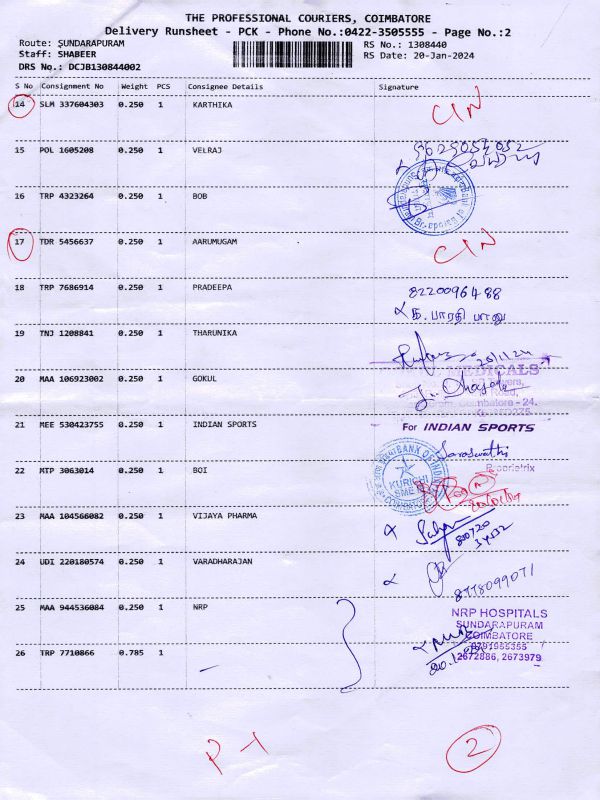 THE PROFESSIONAL COURIERS, COIMBATORE
Delivery Runsheet - PCK - Phone No.:0422-3505555 - Page No.:2
Route: SUNDARAPURAM
Staff: SHABEER
DRS No.: DCJB130844002
RS No.: 1308440
RS Date: 20-Jan-2024
S No Consignment No Weight PCS Consignee Details Signature
14 SLM 337604303 0.250 1 KARTHIKA CIN
15 POL 1605208 0.250 1 VELRAJ 9629054052
16 TRP 4323264 0.250 1 BOB
17 TDR 5456637 0.250 1 AARUMUGAM CIN
18 TRP 7686914 0.250 1 PRADEEPA 8220096488
பாரதி பானு
19 TNJ 1208841 0.250 1 THARUNIKA
20 MAA 106923002 0.250 1 GOKUL
MEDICALS
Coimbatore - 24.
21 MEE 530423755 0.250 1 INDIAN SPORTS For INDIAN SPORTS
Saraswathi
Proprietrix
22 MTP 3063014 0.250 1 BOI
BANK OF INDIA
KURICHI
SME
23 MAA 104566082 0.250 1 VIJAYA PHARMA
24 UDI 220180574 0.250 1 VARADHARAJAN 8778099071
25 MAA 944536084 0.250 1 NRP
NRP HOSPITALS
SUNDARAPURAM
COIMBATORE
2672886, 2673979
26 TRP 7710866 0.785 1
2